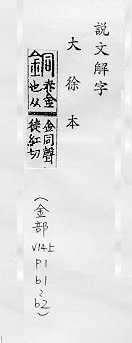 說文解字
大徐本
銅
赤金
也从
金同聲
徒紅切
(金部
V14上
P1
b1
b2)